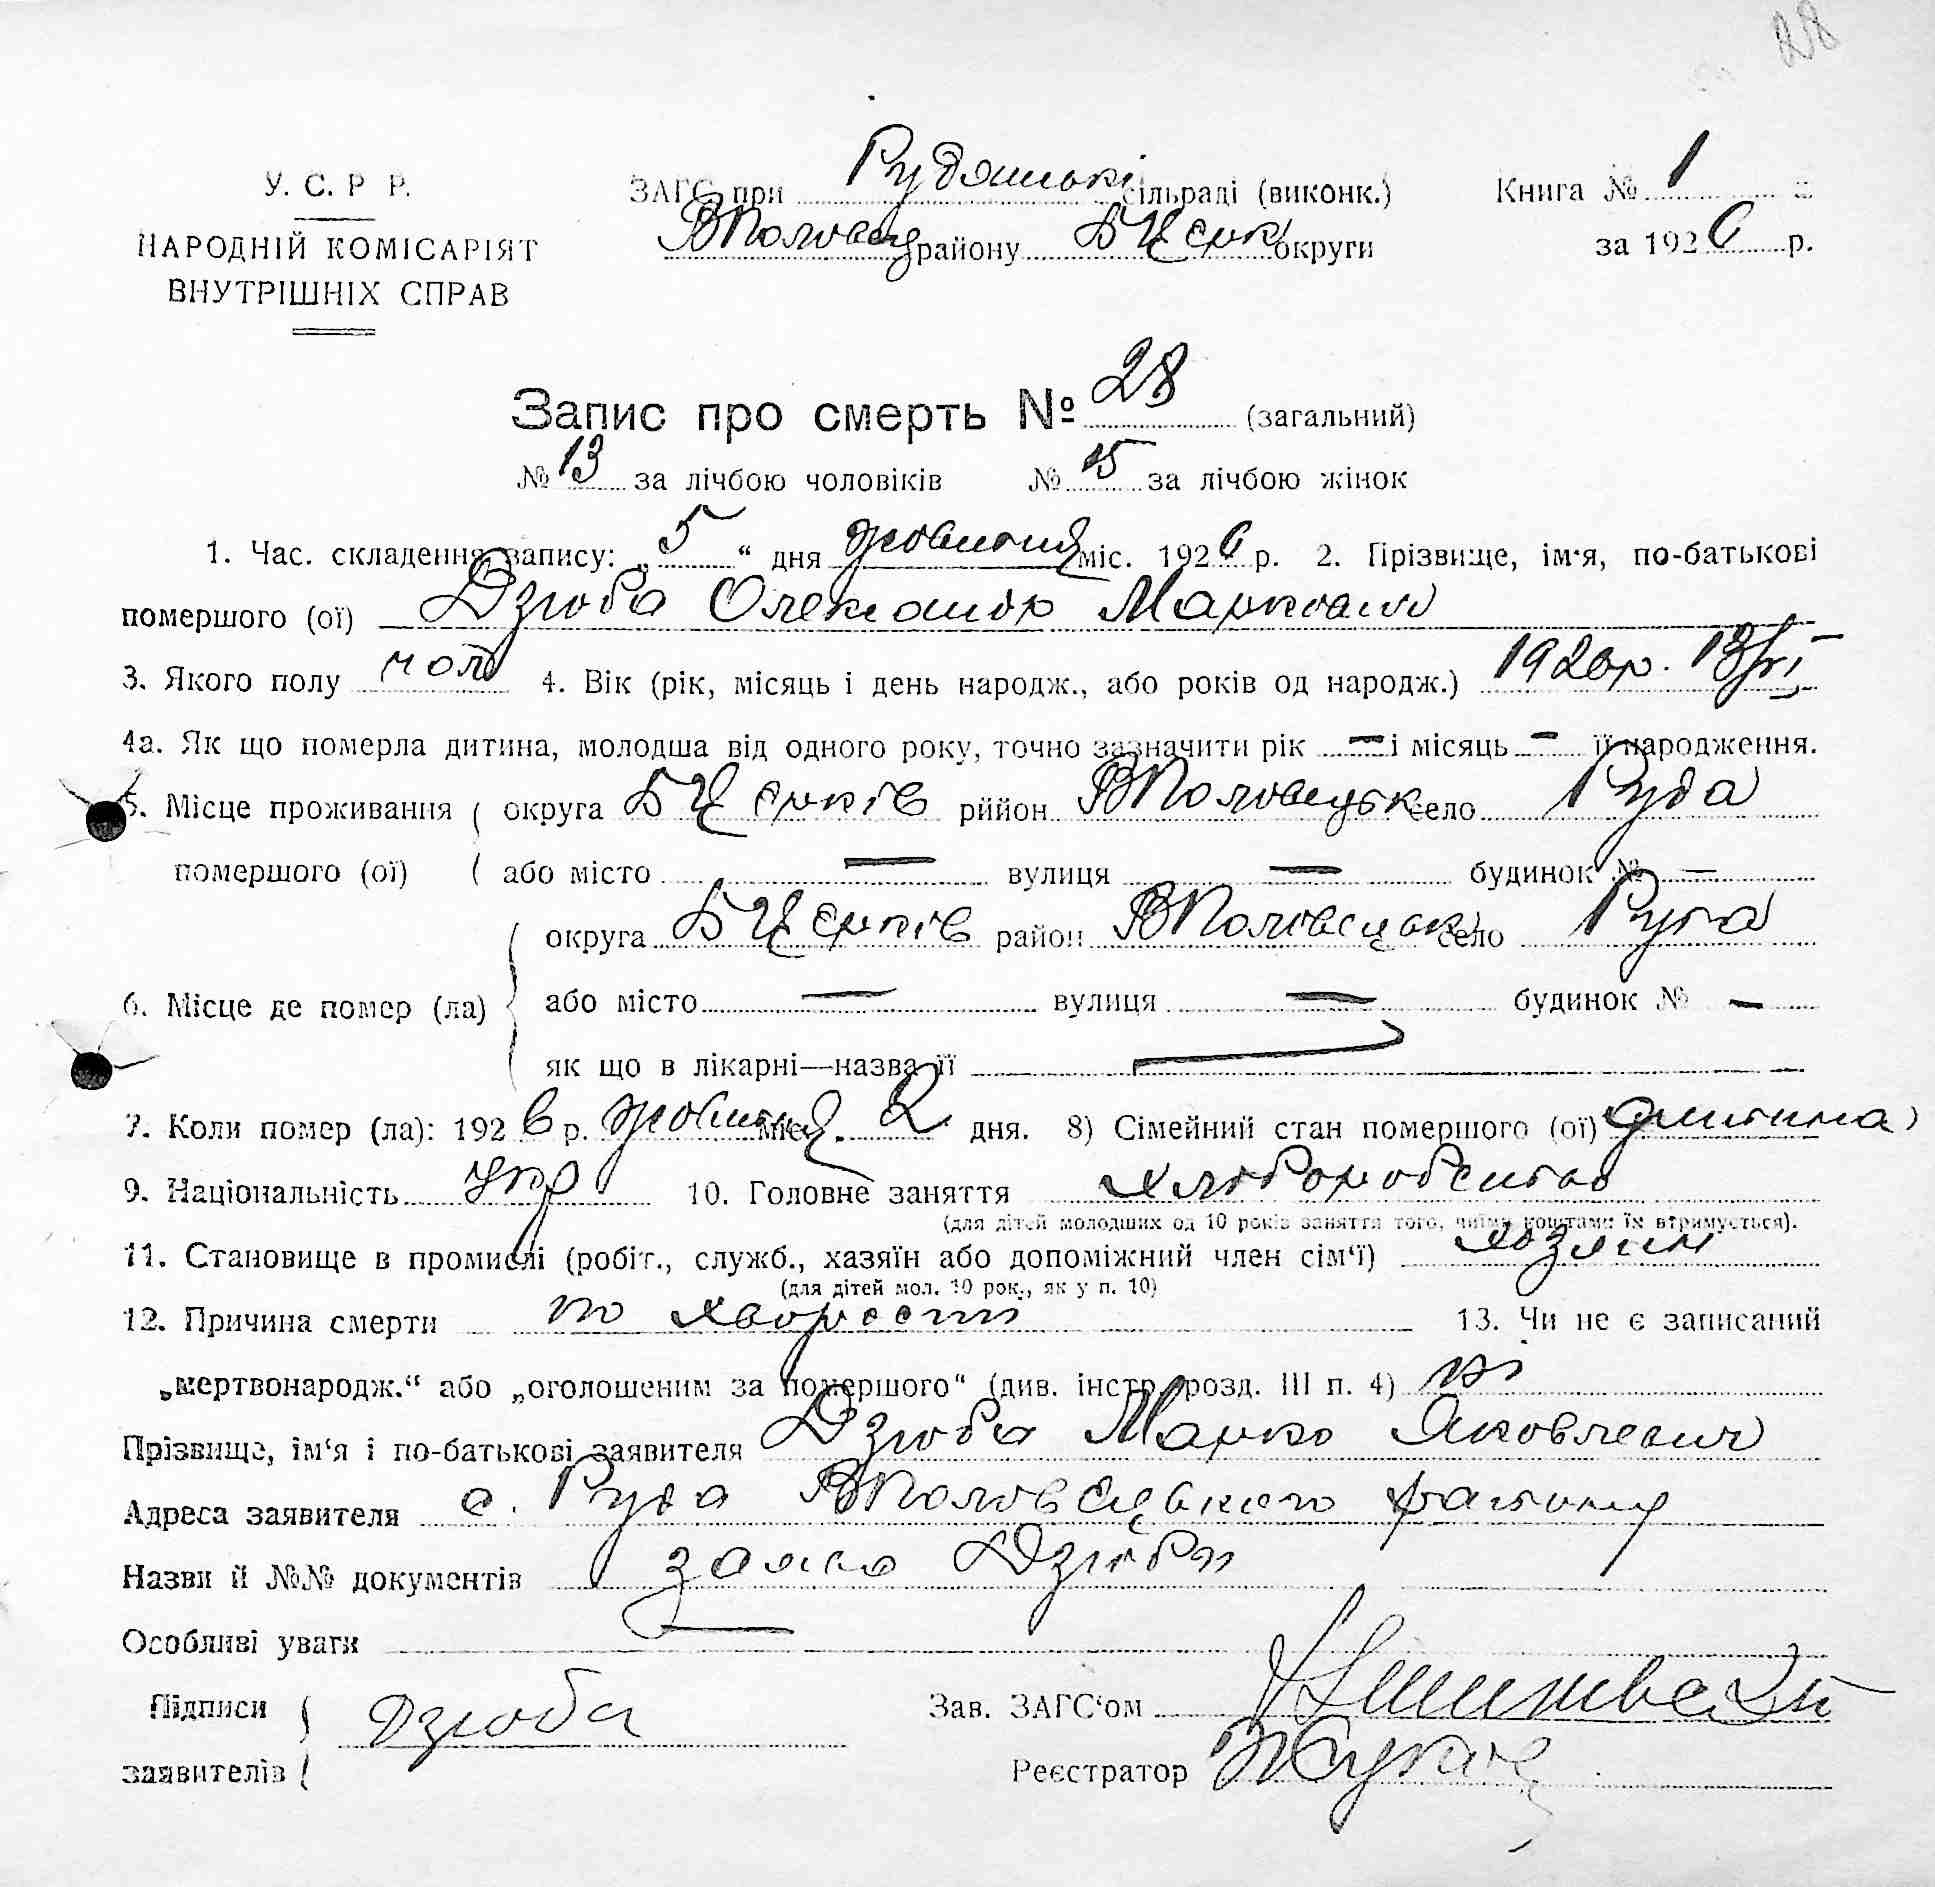 28
У. С. Р Р.
НАРОДНІЙ КОМІСАРІЯТ
ВНУТРІШНІХ СПРАВ
ЗАГС при Рудянські сільраді (виконк.)
ВПоловец району БЦерк округи
Книга № 1
за 1926 р.
Запис про смерть № 28 (загальний)
№ 13 за лічбою чоловіків № 15 за лічбою жінок
1. Час. складення запису: „5“ дня жовтня міс. 1926 р. 2. Прізвище, ім'я, по-батькові
помершого (ої) Дзюба Олександр Маркович
3. Якого полу чол 4. Вік (рік, місяць і день народж., або років од народж.) 1926р. 13/VI
4а. Як що померла дитина, молодша від одного року, точно зазначити рік — і місяць — її народження.
5. Місце проживання округа БЦерків рййон ВПоловецьк село Руда
помершого (ої) або місто — вулиця — будинок № —
округа БЦерків район ВПоловецьк село Руда
6. Місце де помер (ла) або місто — вулиця — будинок № —
як що в лікарні—назва її —
7. Коли помер (ла): 1926 р. жовтня міс. 2 дня. 8) Сімейний стан помершого (ої) дитина
9. Національність укр 10. Головне заняття хліборобство
(для дітей молодших од 10 років заняття того, чиїми коштами їх втримується).
11. Становище в промислі (робіт., служб., хазяїн або допоміжний член сім'ї) хозяин
(для дітей мол. 10 рок., як у п. 10)
12. Причина смерти по хворости 13. Чи не є записаний
„мертвонародж.“ або „оголошеним за помершого“ (див. інстр. розд. III п. 4) ні
Прізвище, ім'я і по-батькові заявителя Дзюба Марко Яковлевич
Адреса заявителя с. Руда ВПоловецького району
Назви й №№ документів заява Дзюби
Особливі уваги —
Підписи Дзюба Зав. ЗАГС'ом
заявителів Реєстратор